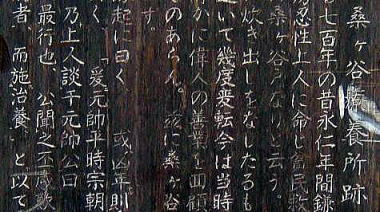 桑ヶ谷療養所跡
七百年の昔永仁年間鎌
忍性上人に命じ民救
桑ヶ谷ならいと云う。
炊き出しをなしたるも
いて幾度変転今は当時
かに偉人の善業を回顧
そのあらん。茲に桑ヶ谷
す。
起に曰く 或凶年則
く 「爰元帥平時宗朝
乃上人談千元帥公曰
最行也、公聞之不歎
者 而施治養 と以て